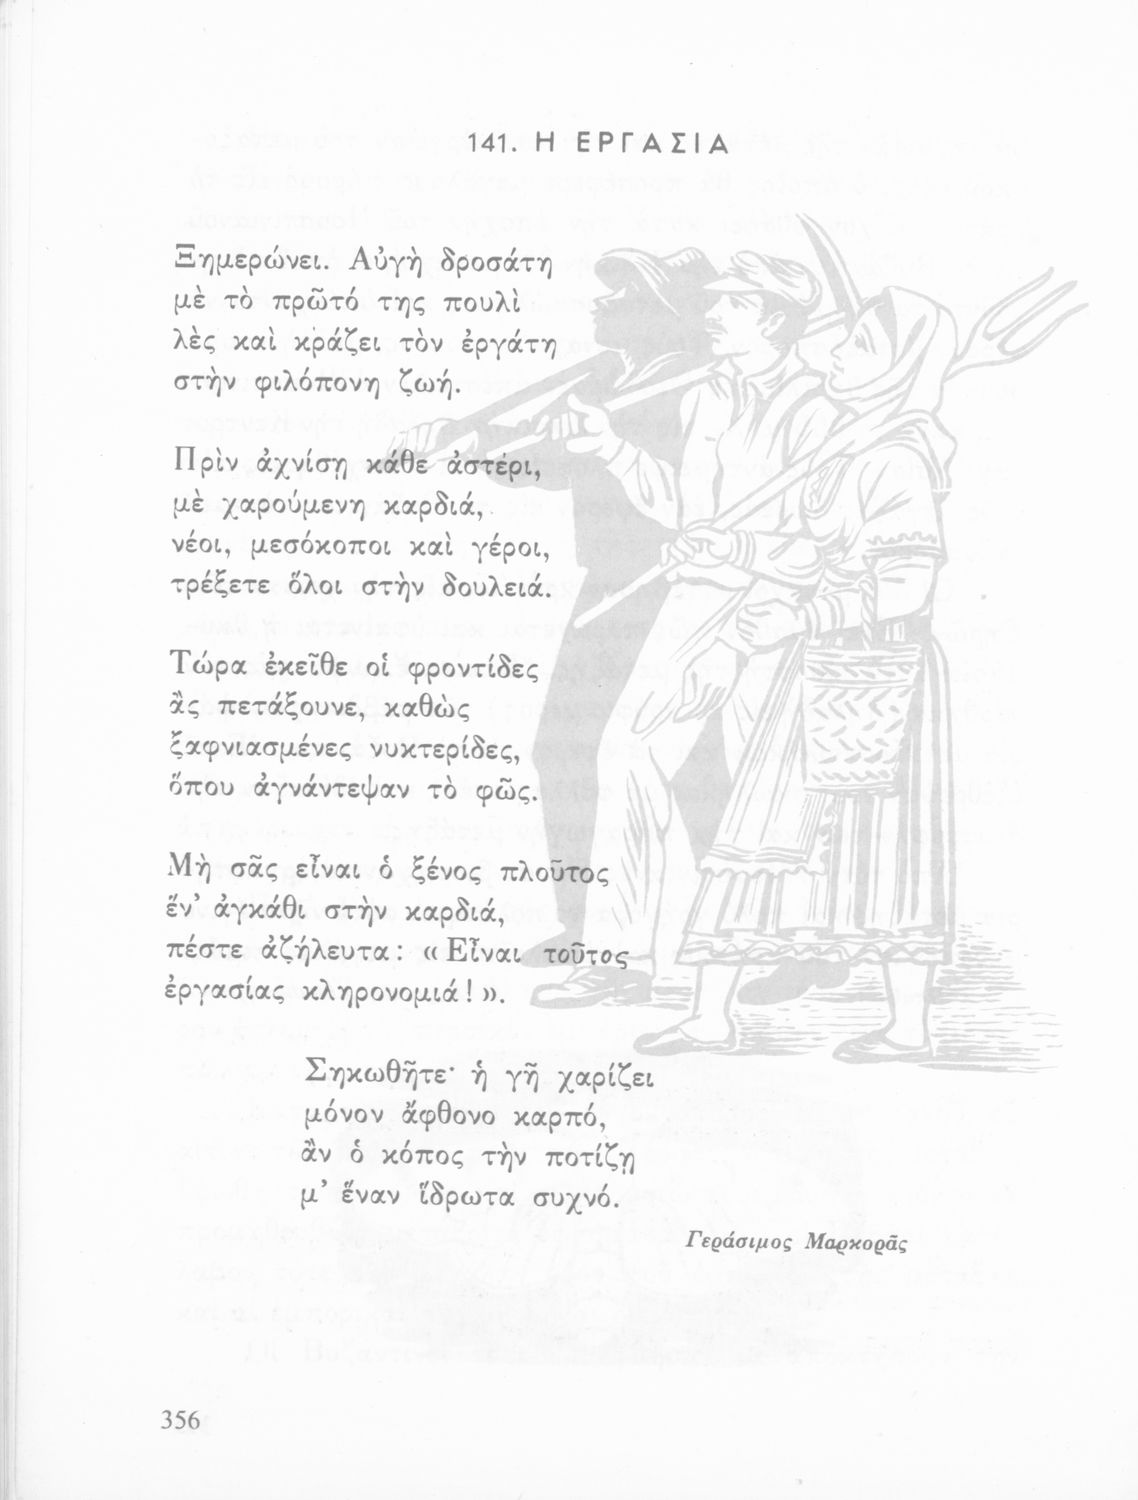 141. Η ΕΡΓΑΣΙΑ
Ξημερώνει. Αὐγὴ δροσάτη
μὲ τὸ πρῶτό της πουλὶ
λὲς καὶ κράζει τὸν ἐργάτη
στὴν φιλόπονη ζωή.
Πρὶν ἀχνίσῃ κάθε ἀστέρι,
μὲ χαρούμενη καρδιά,
νέοι, μεσόκοποι καὶ γέροι,
τρέξετε ὅλοι στὴν δουλειά.
Τώρα ἐκεῖθε οἱ φροντίδες
ἂς πετάξουνε, καθὼς
ξαφνιασμένες νυκτερίδες,
ὅπου ἀγνάντεψαν τὸ φῶς.
Μὴ σᾶς εἶναι ὁ ξένος πλοῦτος
ἕν’ ἀγκάθι στὴν καρδιά,
πέστε ἀζήλευτα: «Εἶναι τοῦτος
ἐργασίας κληρονομιά!».
Σηκωθῆτε· ἡ γῆ χαρίζει
μόνον ἄφθονο καρπό,
ἂν ὁ κόπος τὴν ποτίζῃ
μ’ ἕναν ἵδρωτα συχνό.
Γεράσιμος Μαρκορᾶς
356